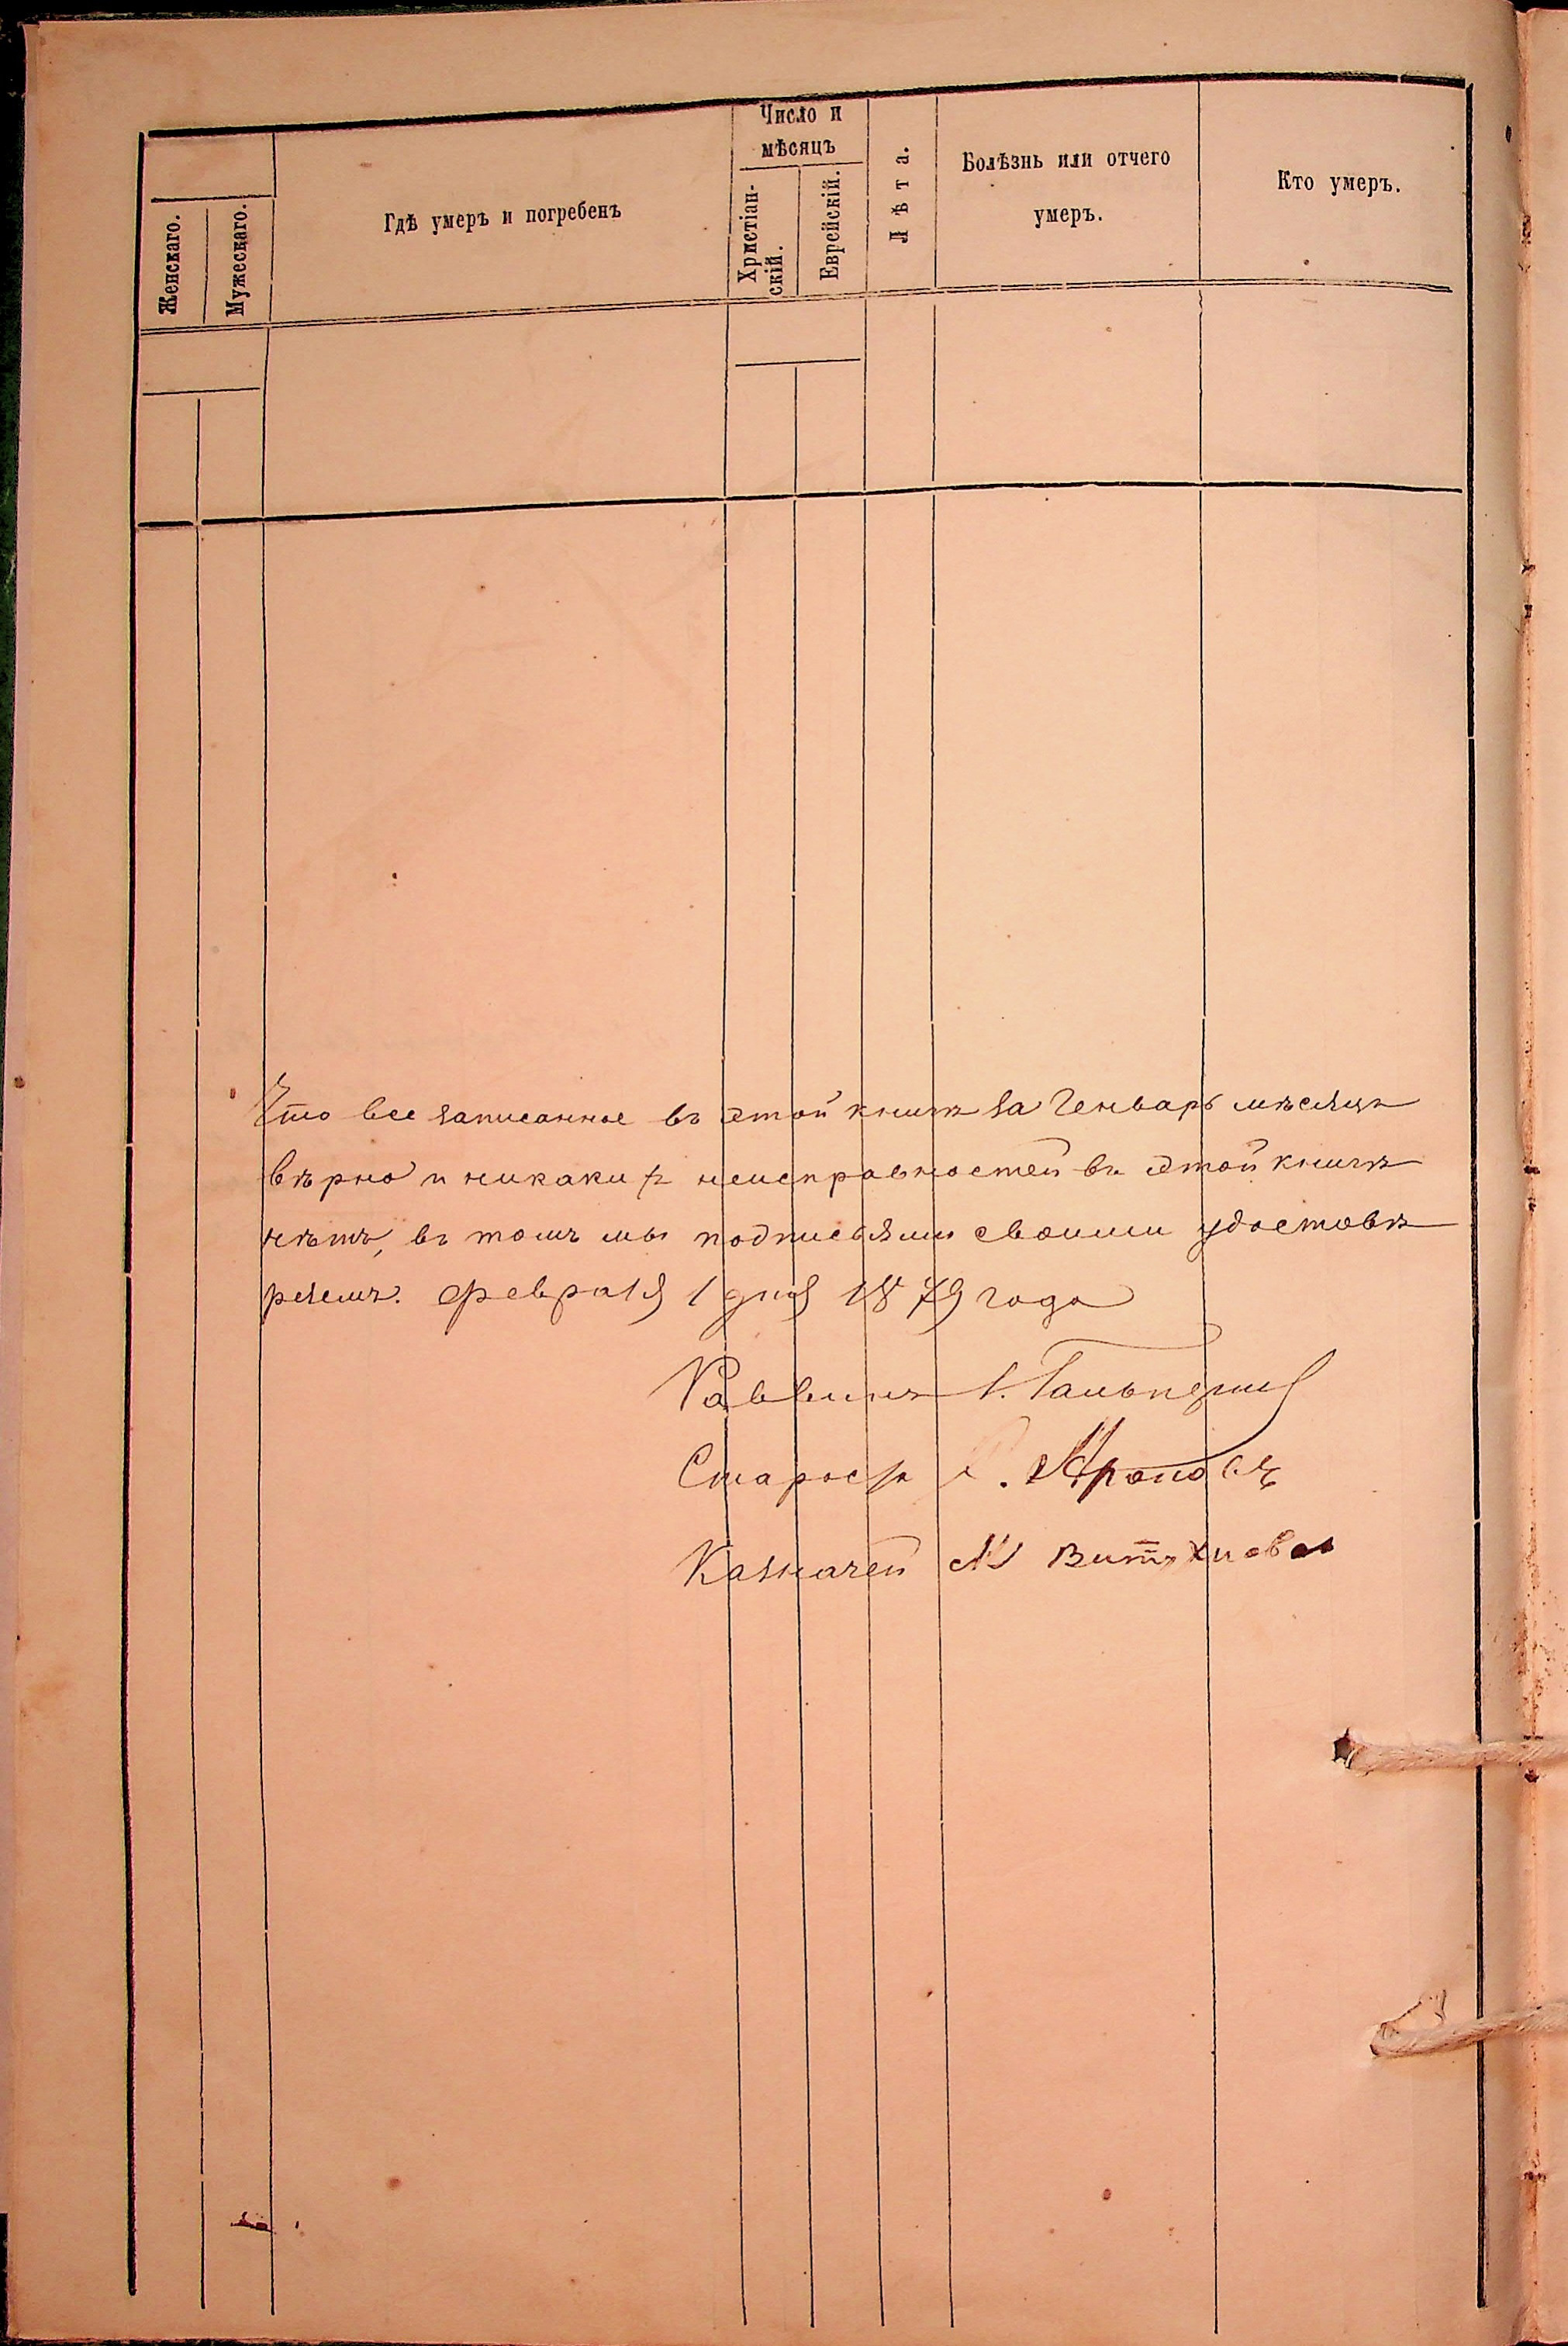 Число и
мѣсяцъ
Женскаго.
Мужескаго.
Гдѣ умеръ и погребенъ
Христіан-
скій.
Еврейскій.
Лѣта.
Болѣзнь или отчего
умеръ.
Кто умеръ.
Что все записанное въ этой книгѣ за Генварь мѣсяцъ
вѣрно и никакихъ неисправностей въ этой книгѣ
нѣтъ, въ томъ мы подписями своими удостовѣ
ряемъ. Февраля 1 дня 1879 года
Раввинъ Гальперин
Староста
Казначей М